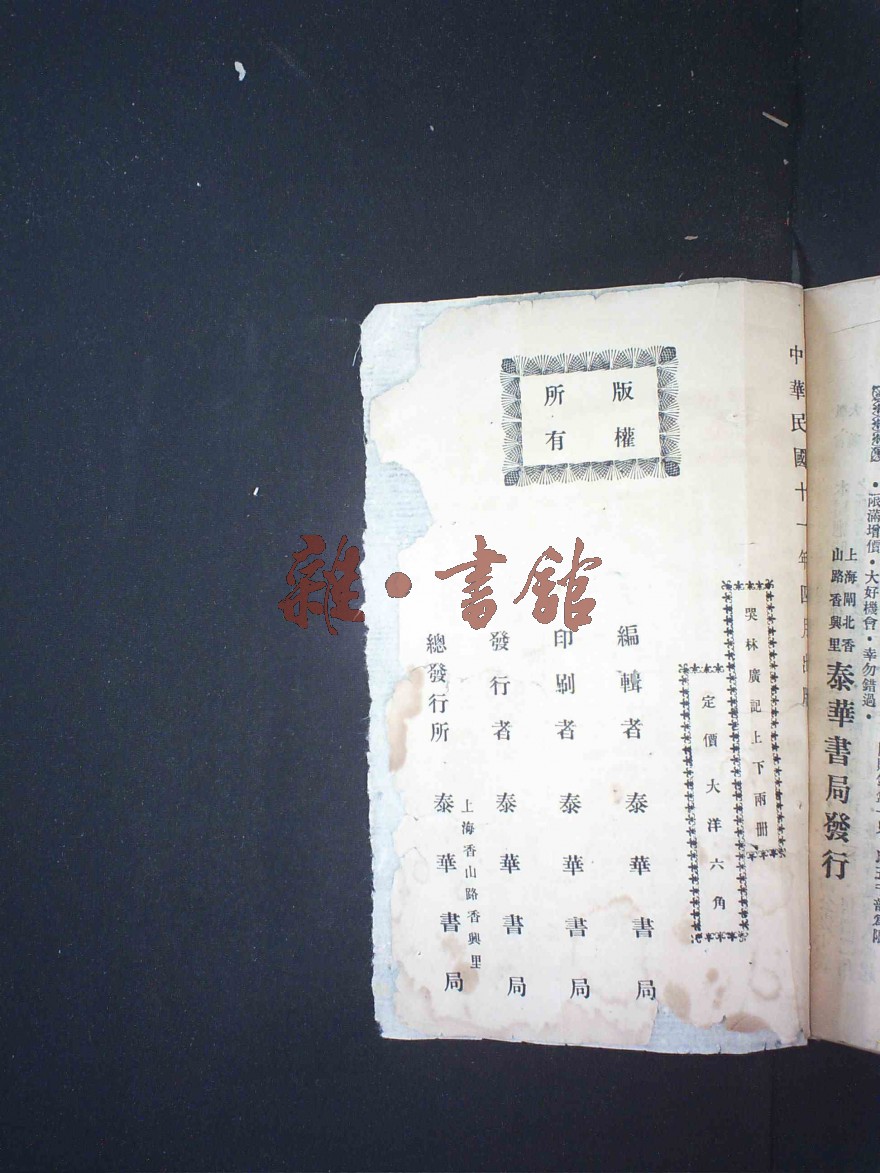 •限滿增價•大好機會•幸勿錯過•
上海閘北香
山路香興里
泰華書局發行
中華民國十一年四月出版
笑林廣記上下兩冊
定價大洋六角
版權
所有
編輯者 泰華書局
印刷者 泰華書局
發行者 泰華書局
上海香山路香興里
總發行所 泰華書局
雜•書館